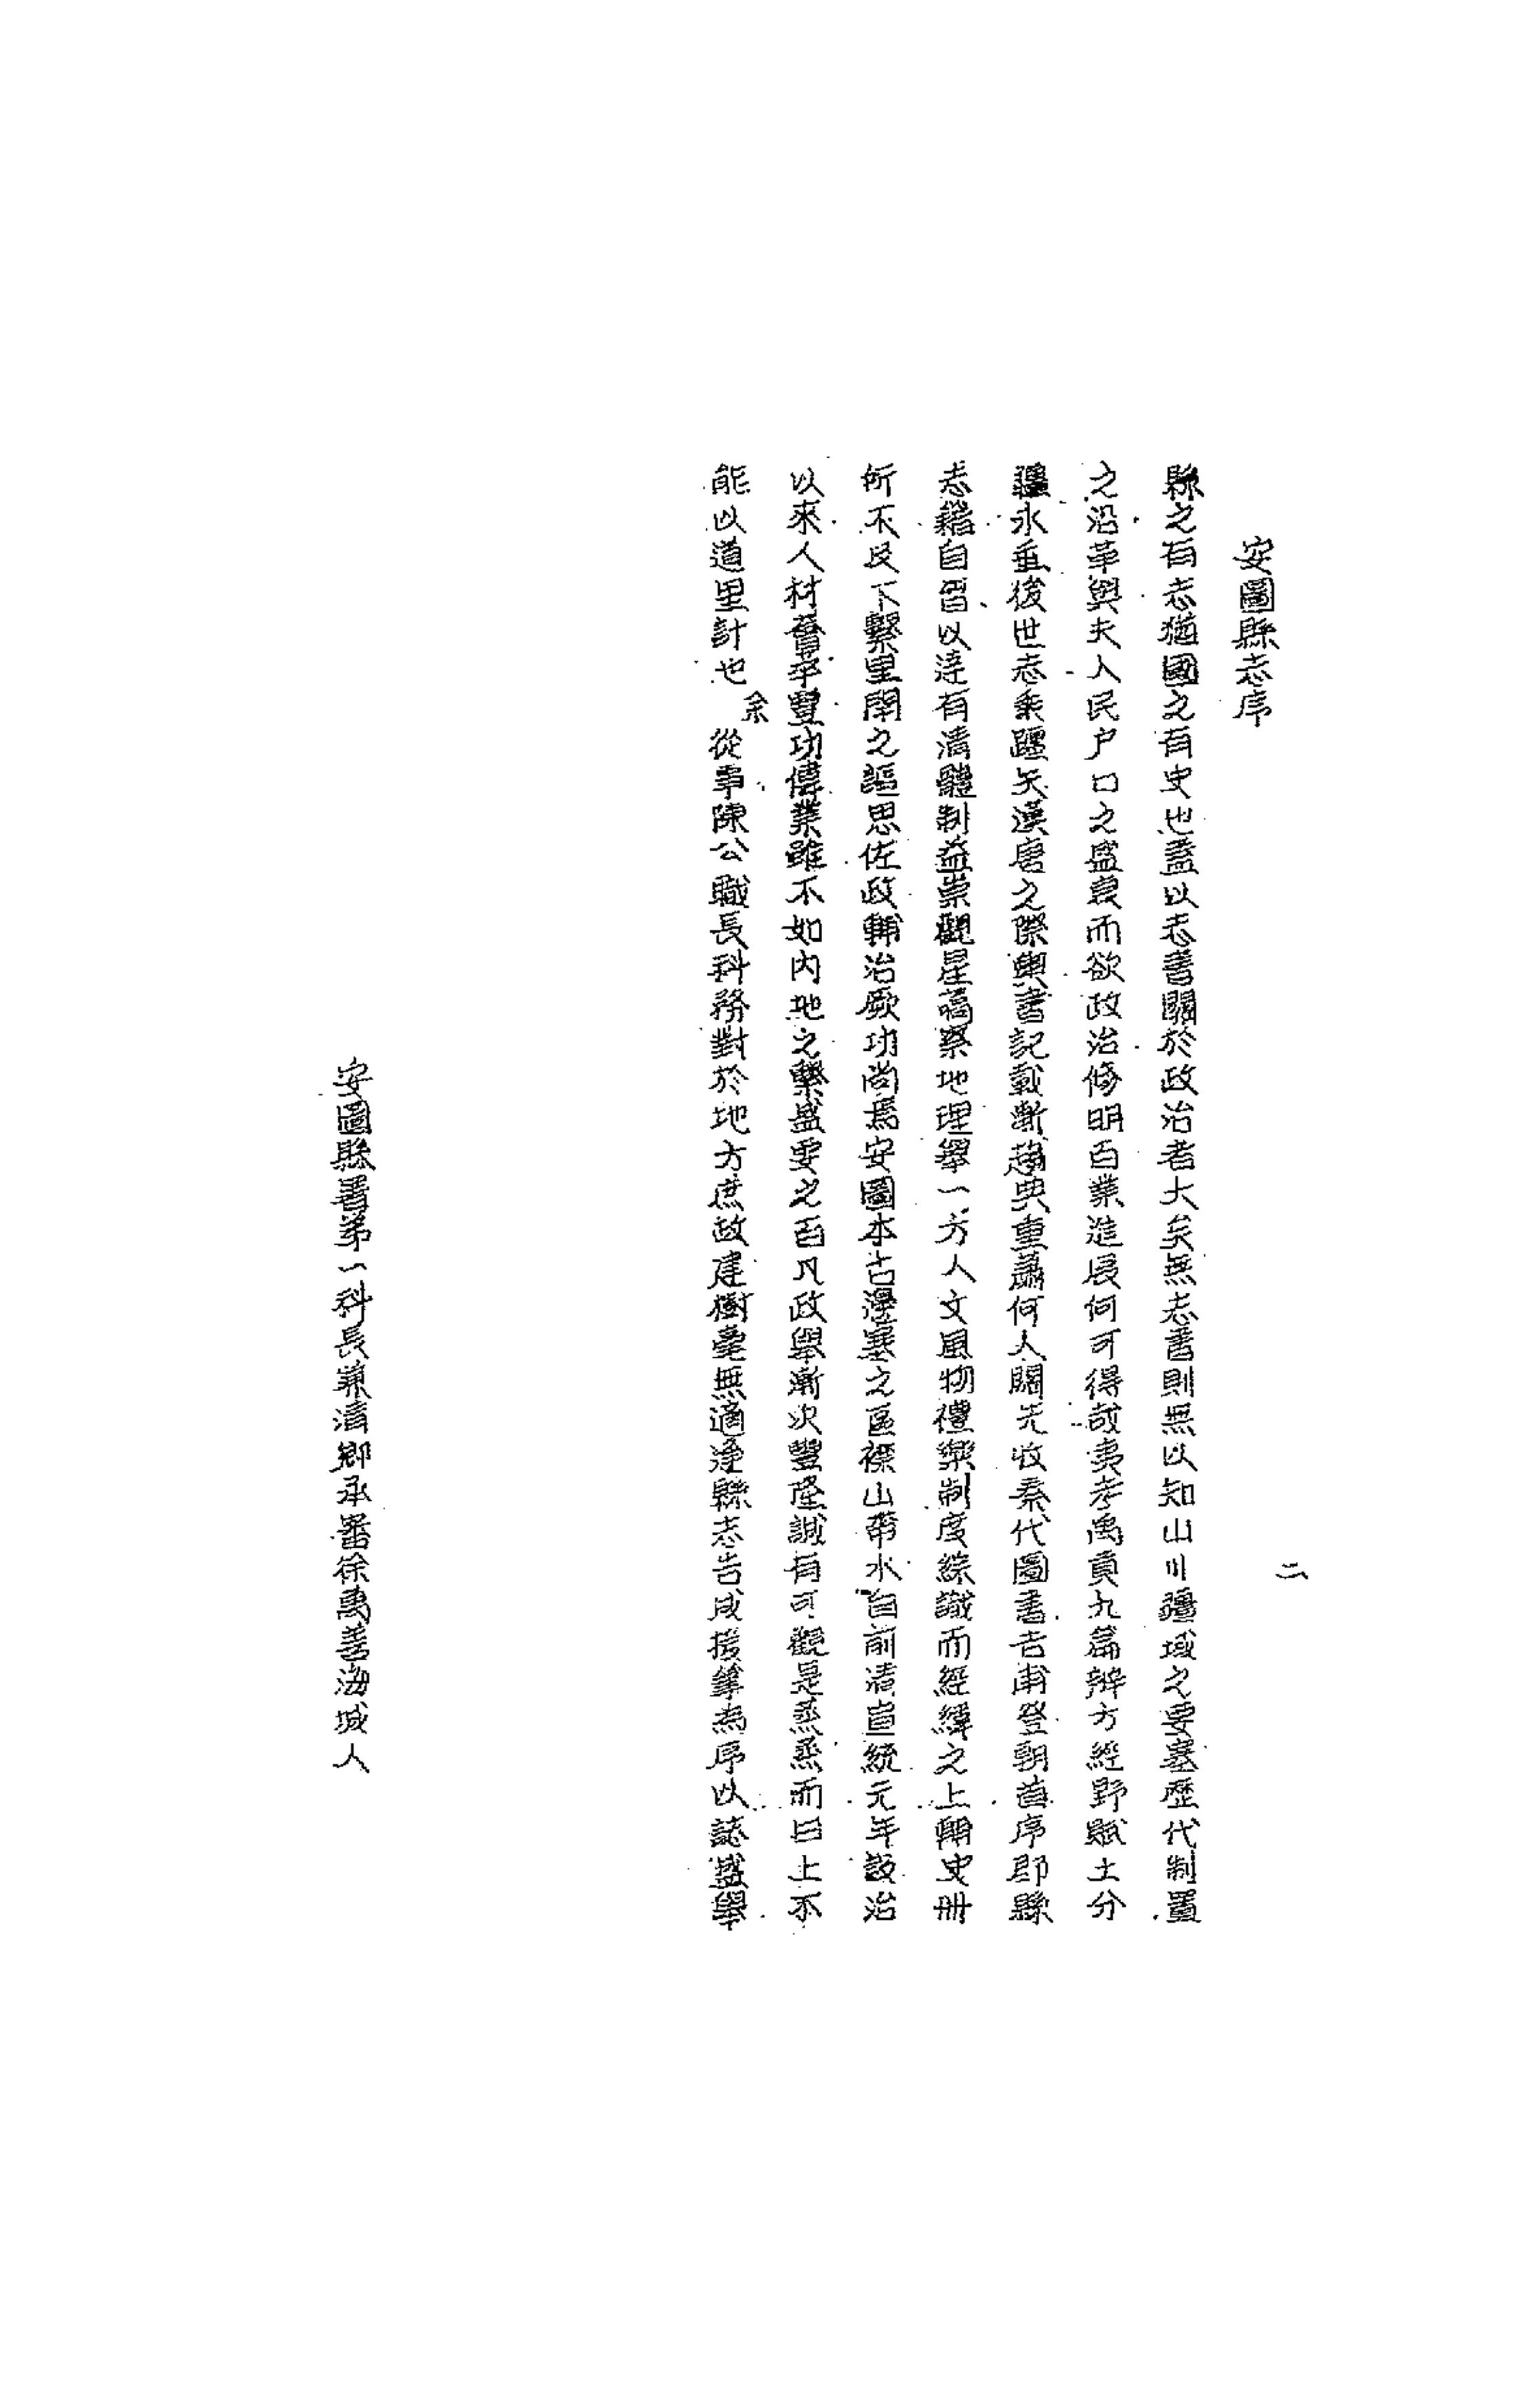 二
安圖縣志序
縣之有志猶國之有史也蓋以志書關於政治者大矣無志書則無以知山川疆域之要塞歷代制置
之沿革與夫人民户口之盛衰而欲政治修明百業進展何可得哉夷考禹貢九篇辨方經野賦土分
疆永垂後世志乘躔矢漢唐之際輿書記載漸趨典重蕭何人關先收秦代圖書吉甫登朝首序郡縣
志籍自晋以達有清體制益崇觀星稿察地理舉一方人文風物禮樂制度綜識而經緯之上輔史册
所不及下繫里閈之謳思佐政輔治厥功尚焉安圖本古邊塞之區襟山帶水自前清宣統元年設治
以來人材薈萃豐功偉業雖不如内地之繁盛要之百凡政舉漸次豐隆誠有可觀是蒸蒸而日上不
能以道里計也余從事陳公職長科務對於地方庶政建樹毫無適逢縣志告成援筆為序以誌盛舉
安圖縣署第一科長兼清鄉承審徐禹善海城人